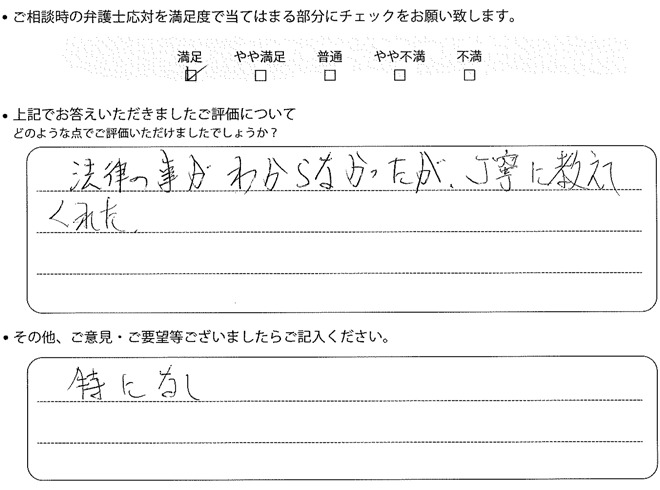 • ご相談時の弁護士応対を満足度で当てはまる部分にチェックをお願い致します。
満足 やや満足 普通 やや不満 不満
• 上記でお答えいただきましたご評価について
どのような点でご評価いただけましたでしょうか？
法律の事がわからなかったが、丁寧に教えて
くれた。
• その他、ご意見・ご要望等ございましたらご記入ください。
特になし